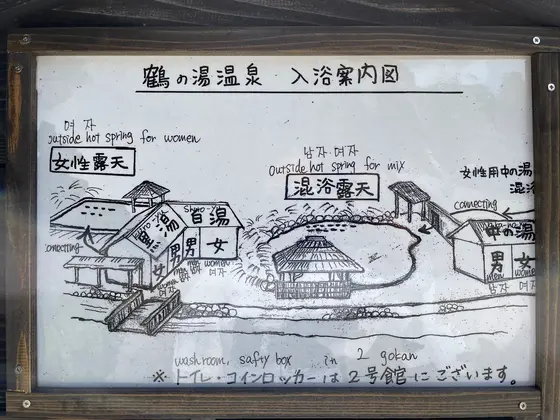 鶴の湯温泉 入浴案内図
여자
outside hot spring for women
女性露天
남자 여자
Outside hot spring for mix
混浴露天
女性用中の湯
混浴
connecting
connecting
黒湯
白湯
男
男
女
女
women
여자
여자
中の湯
男
女
men
women
남자
여자
washroom, safty box in 2 gokan
※ トイレ・コインロッカーは2号館にございます。